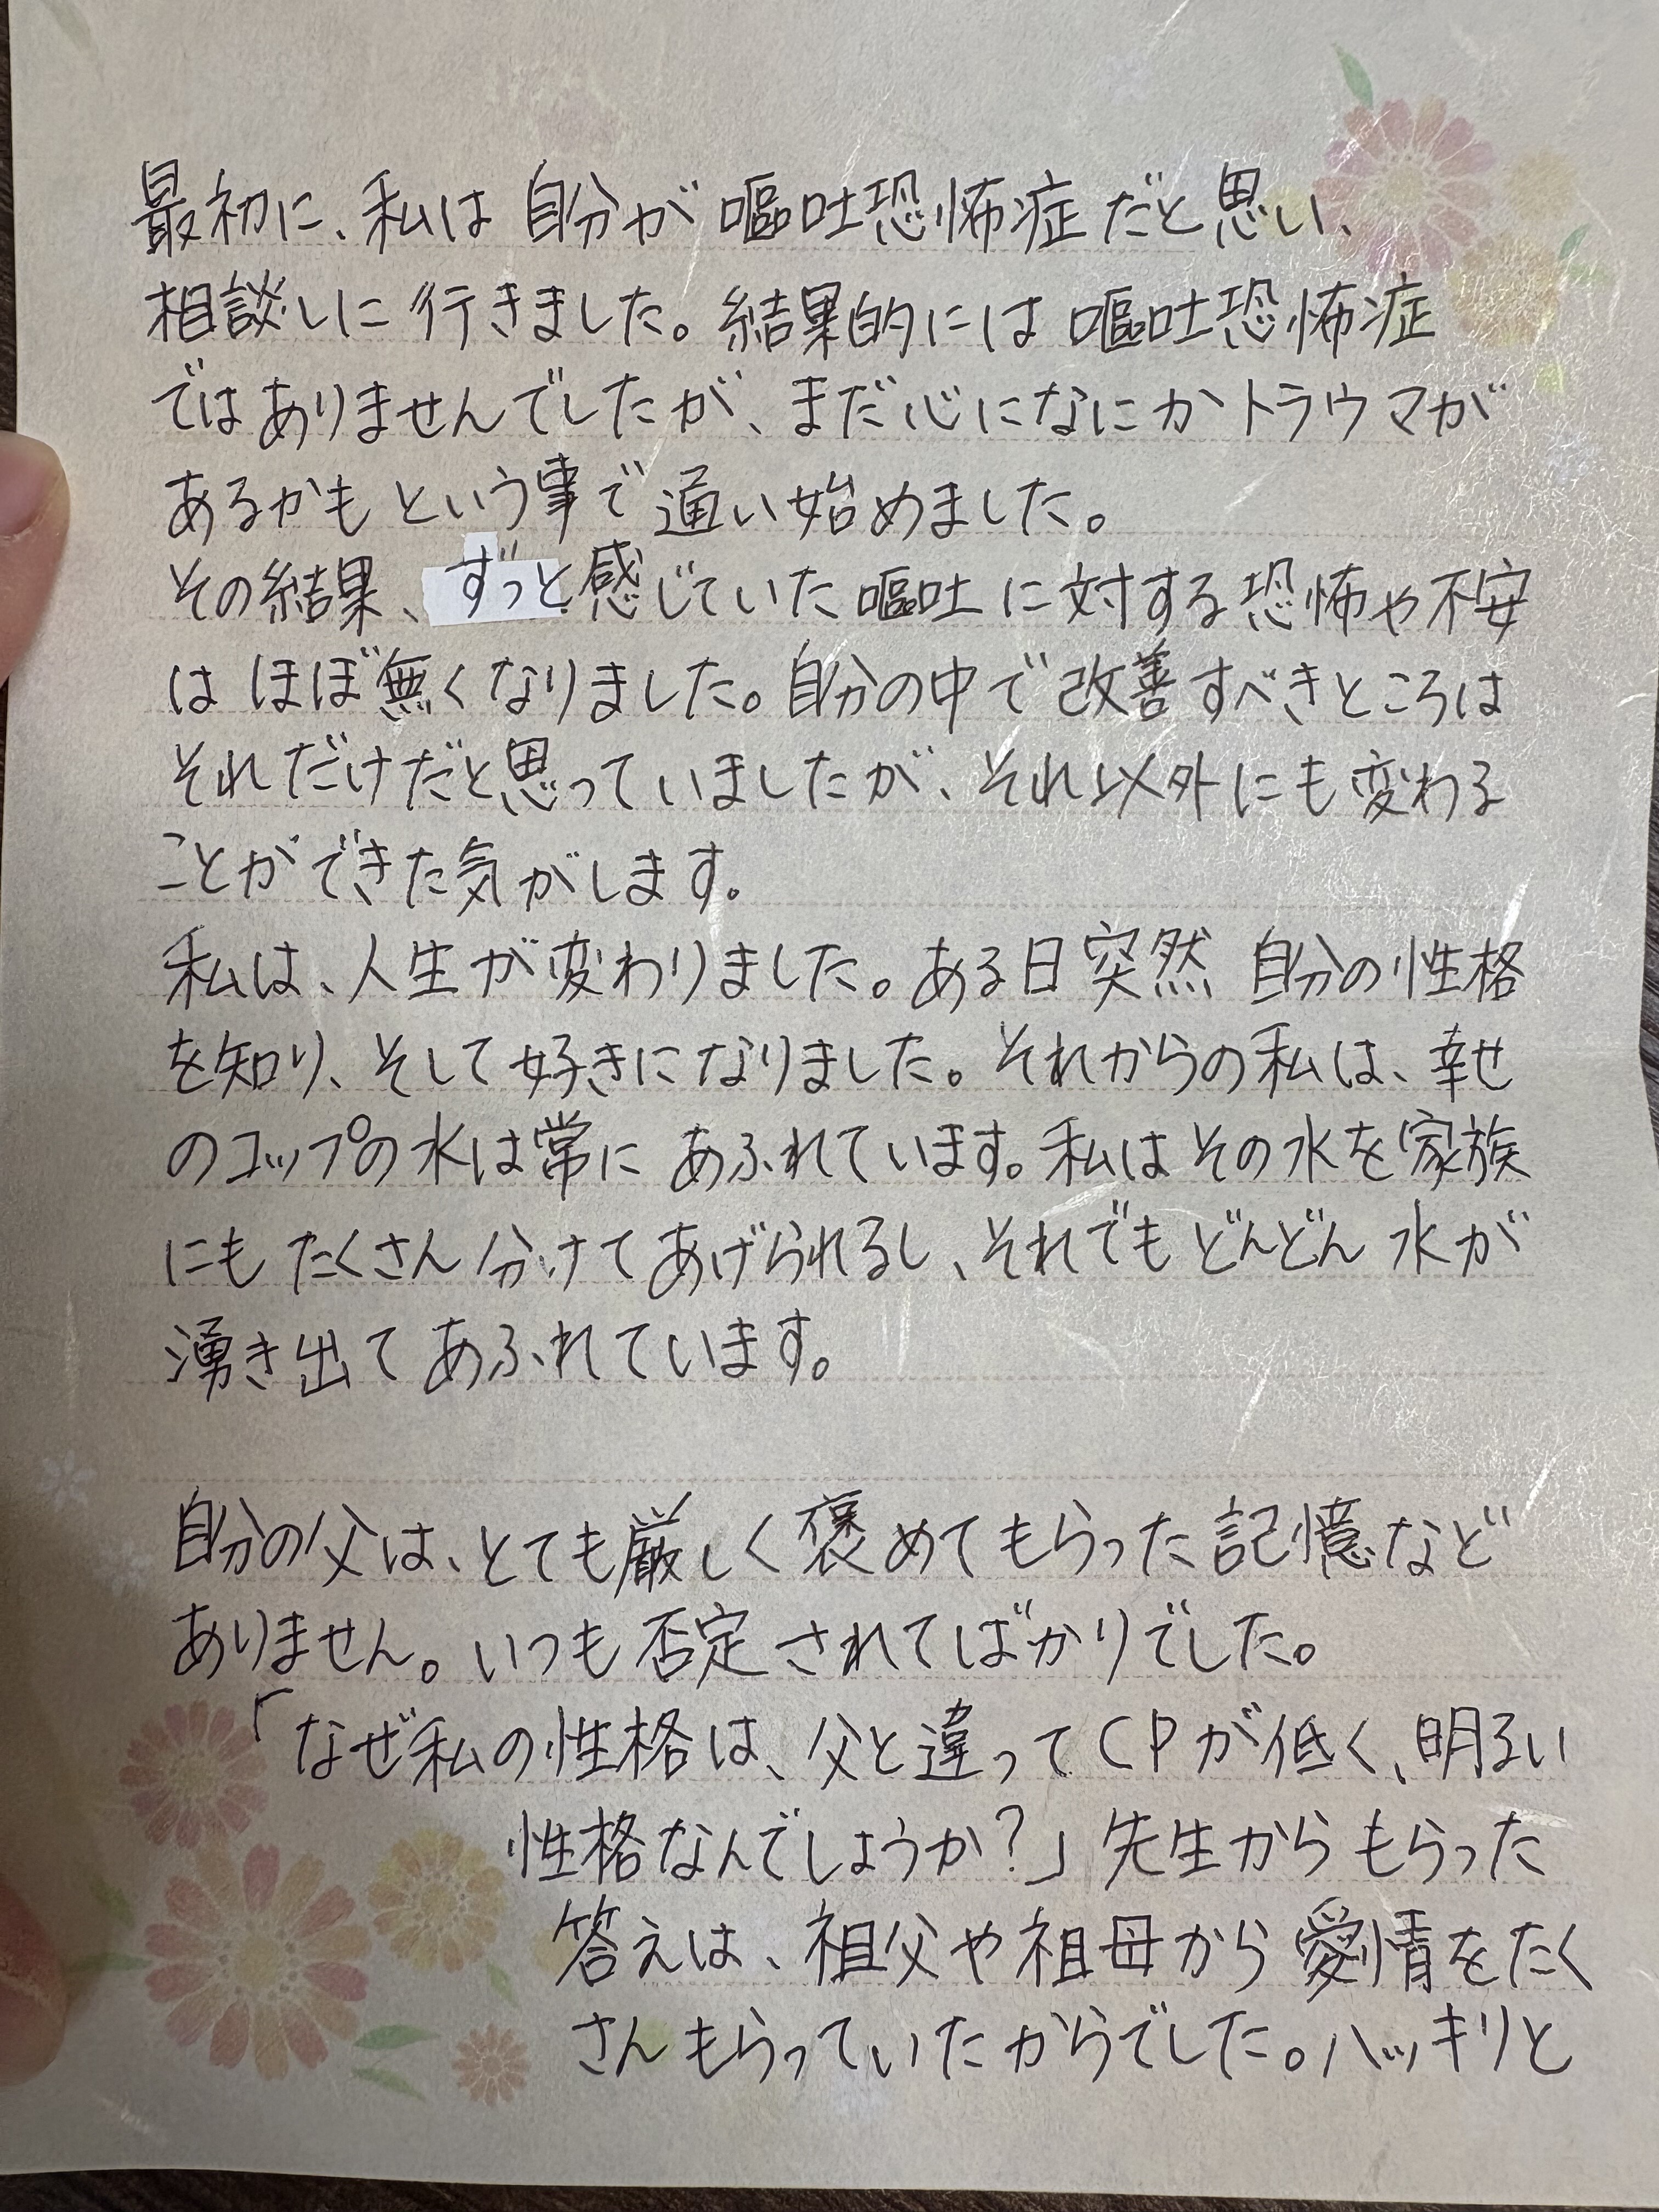 最初に、私は自分が嘔吐恐怖症だと思い、
相談しに行きました。結果的には嘔吐恐怖症
ではありませんでしたが、まだ心になにかトラウマが
あるかもという事で通い始めました。
その結果、ずっと感じていた嘔吐に対する恐怖や不安
はほぼ無くなりました。自分の中で改善すべきところは
それだけだと思っていましたが、それ以外にも変わる
ことができた気がします。
私は、人生が変わりました。ある日突然自分の性格
を知り、そして好きになりました。それからの私は、幸せ
のコップの水は常にあふれています。私はその水を家族
にもたくさん分けてあげられるし、それでもどんどん水が
湧き出てあふれています。
自分の父は、とても厳しく褒めてもらった記憶など
ありません。いつも否定されてばかりでした。
「なぜ私の性格は、父と違ってCPが低く、明るい
性格なんでしょうか?」先生からもらった
答えは、祖父や祖母から愛情をたく
さんもらっていたからでした。ハッキリと